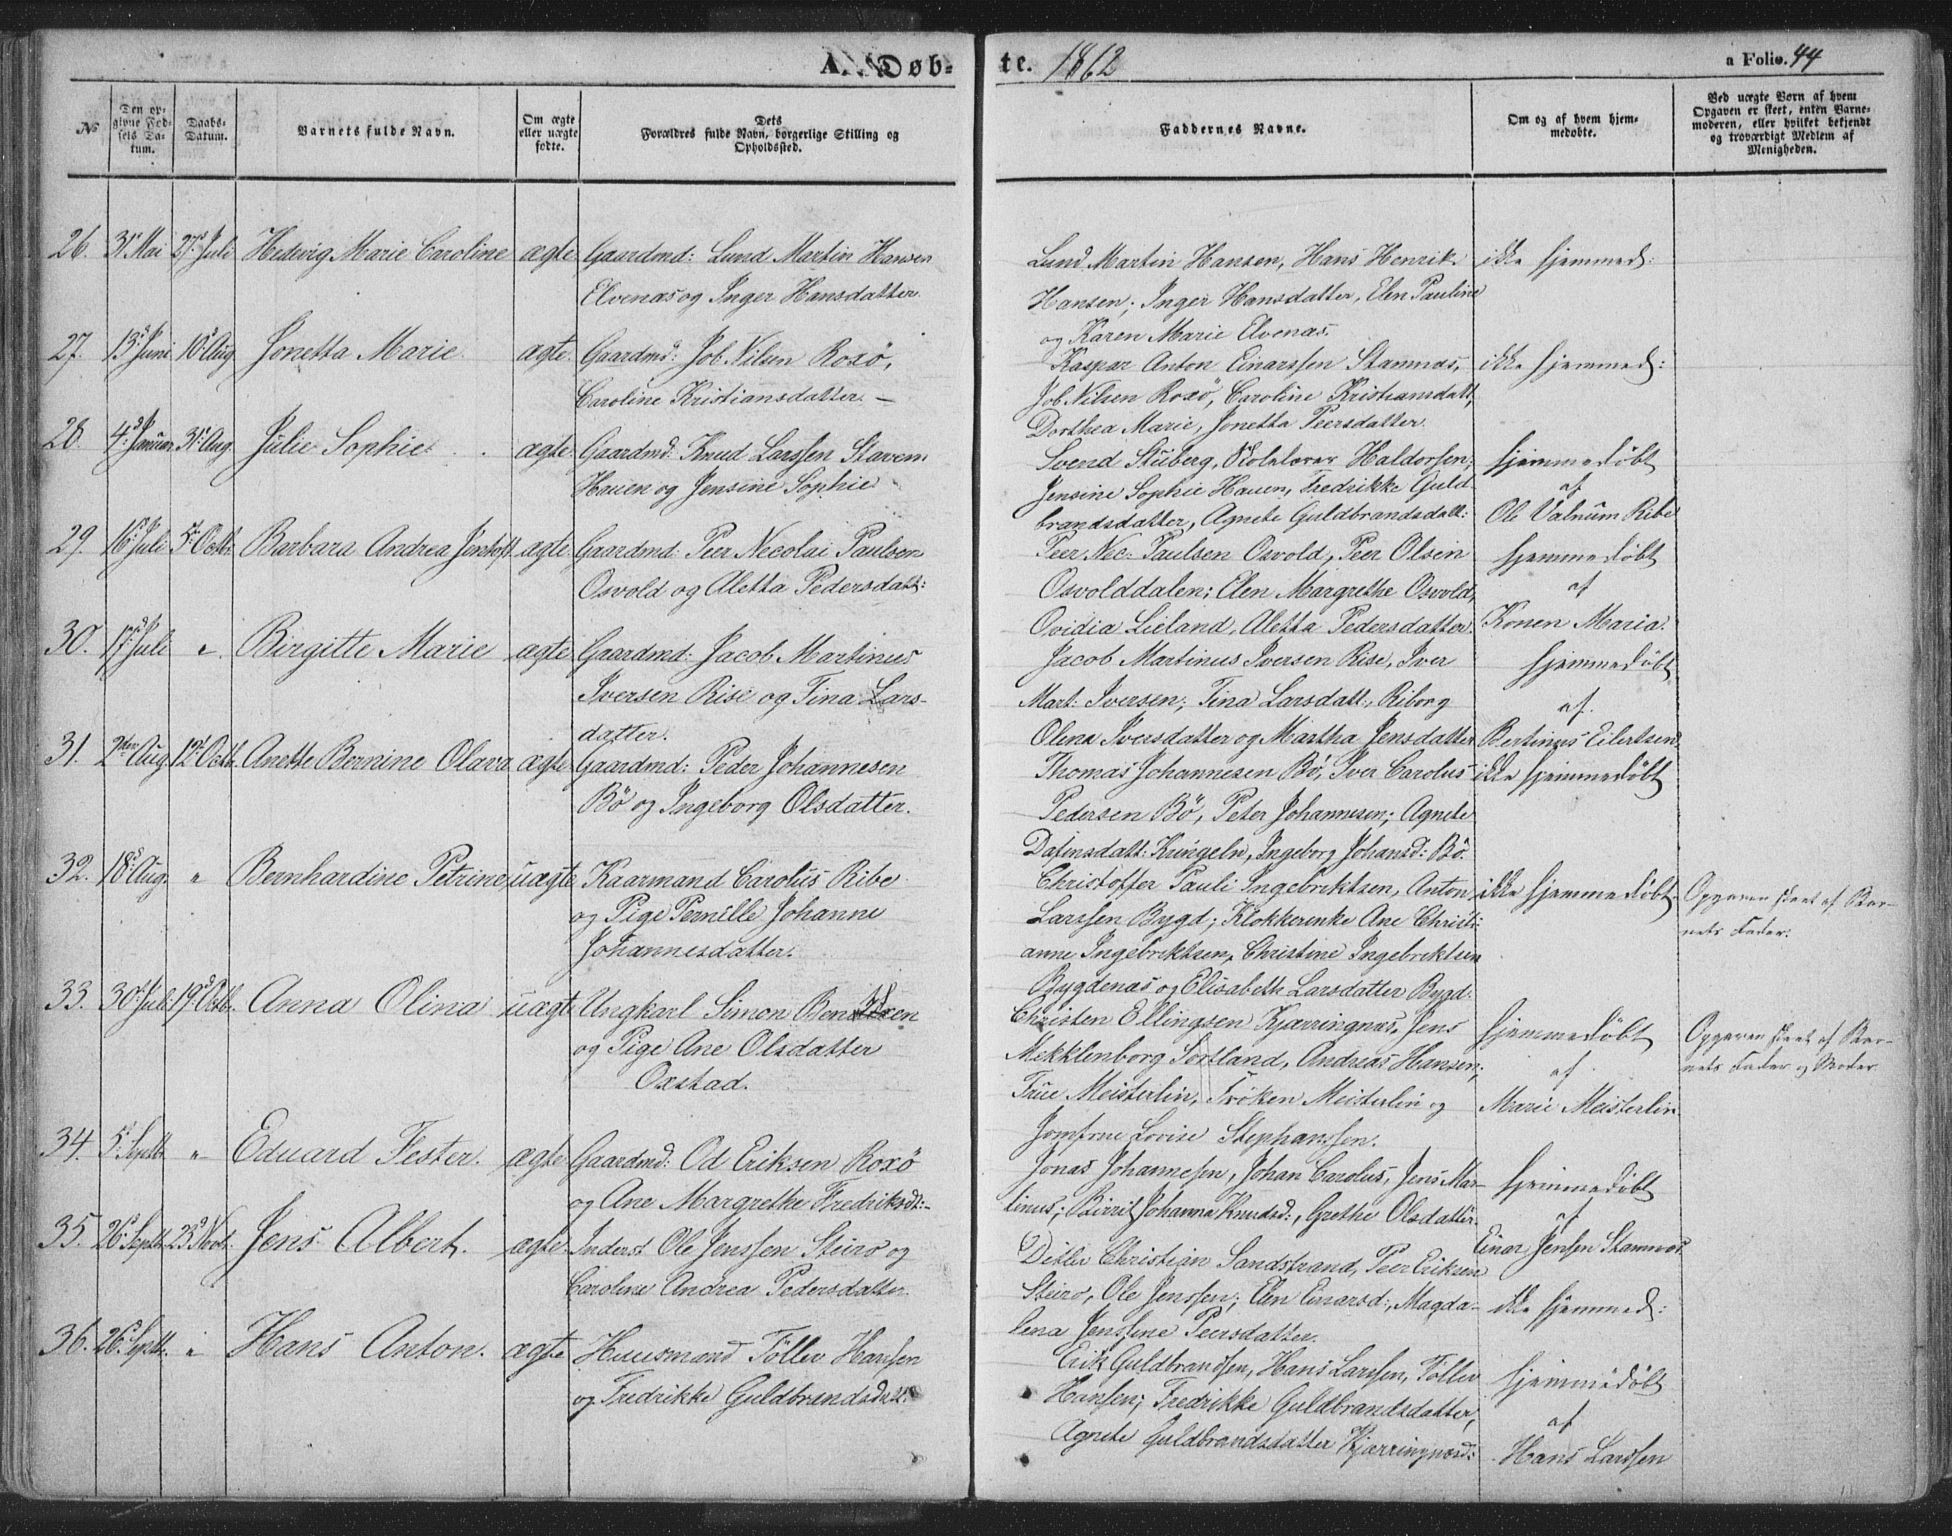 A. Døb-
te. 1862
a Folio. 44
No
Den op-
givne Fød-
sels Da-
tum.
Daabs-
Datum.
Barnets fulde Navn.
Om ægte
eller uægte
fødte.
Dets
Forældres fulde Navn, borgerlige Stilling og
Opholdssted.
Faddernes Navne.
Om og af hvem hjem-
medøbte.
Ved uægte Børn af hvem
Opgaven er skeet, enten Barne-
moderen, eller hvilket bekjendt
og troværdigt Medlem af
Menigheden.
26. 31t Mai 27d Juli Hedevig Marie Caroline ægte Gaardmd: Lund Martin Hansen
Elvenæs og Inger Hansdatter.
Lund Martin Hansen, Hans Henrik
Hansen; Inger Hansdatter, Elen Pauline
og Karen Marie Elvenæs.
ikke hjemmed:
27. 13d Juni 10d Aug Jonetta Marie. ægte. Gaardmd: Job Nilsen Roxø,
Caroline Kristiansdatter. —
Kaspar Anton Einarssen Stamnæs,
Job Nilsen Roxö, Caroline Kristiansdatt,
Dorthea Marie, Jonetta Peersdatter.
ikke hjemmed:
28. 4d Januar 31t Aug. Julie Sophie. ægte. Gaardmd: Knud Larssen Stavem
Hauen og Jensine Sophie
Svend Stuberg, Skolelærer Haldorsen;
Jensine Sophie Hauen, Fredrikke Guld-
brandsdatter, Agnete Guldbrandsdatt:
hjemmedøbt
af
Ole Valnum Ribe
29. 16d Juli 5t Octb: Barbara Andrea Jentoft ægte Gaardmd: Peer Necolai Paulsen
Osvold og Aletta Pedersdatt:
Peer Nic: Paulsen Osvold, Peer Olsen
Osvolddalen; Elen Margrethe Osvold,
Ovidia Lieland, Aletta Pedersdatter.
hjemmedøbt
af
Konen Maria.
30. 17d Juli " Birgitte Marie ægte Gaardmd: Jacob Martinus
Iversen Rise og Tina Lars-
datter.
Jacob Martinus Iversen Rise, Iver
Mart: Iversen; Tina Larsdatt:, Riborg
Olena Iversdatter og Martha Jensdatter
hjemmedøbt
af.
Bertinus Eilertsen
31. 2den Aug 12d Octb. Anette Bernine Olava ægte Gaardmd: Peder Johannesen
Bö og Ingeborg Olsdatter.
Thomas Johannesen Bö, Iver Carolus
Pedersen Bö, Peter Johannesen; Agnete
Dafinsdatt: Kringeln, Ingeborg Johansd: Bö.
ikke hjemmedøbt
32. 18d Aug. " Bernhardine Petrine uægte Kaarmand Carolus Ribe
og Pige Pernille Johanne
Johannesdatter.
Christoffer Pauli Ingebriktsen, Anton
Larssen Bygd; Klokkerenke Ane Christi-
anne Ingebriktsen, Christine Ingebriktsen
Bygdenæs og Elisabeth Larsdatter Bygd.
ikke hjemmedøbt.
Opgaven skeet af Bar-
nets Fader.
33. 30d Juli 19d Octb. Anna Olina uægt Ungkarl Simon
og Pige Ane Olsdatter
Oxstad.
Christen Ellingsen Kjærringnæs, Jens
Mekklenborg Sortland, Andreas Hansen;
Frue Meisterlin, Frøken Meisterlin og
Jomfrue Lovise Stephanssen.
hjemmedøbt
af
Marie Meisterlin
Opgaven skeet af Bar-
nets Fader og Moder
34. 5t Septb. " Eduard Fester. ægte. Gaardmd: Od Eriksen Roxø
og Ane Margrethe Fredriksdt:-
Jonas Johannesen, Johan Carolus, Jens Mar-
tinus; Birrit Johanna Knudsd:, Grethe Olsdatter
hjemmedøbt
af
Einar Jensen Stamnæs
35. 26d Septb. 23d Novb. Jens Albert. ægte. Inderst Ole Jenssen Steiro og
Caroline Andrea Pedersdatter.
Ditlev Christian Sandstrand, Peer Eriksen
Steiro, Ole Jenssen; Elen Einarsd:, Magda-
lena Jenssine Peersdatter.
ikke hjemmed:
36. 26d Septb. " Hans Anton. ægte Huusmand Töllev Hanssen
og Fredrikke Guldbrandsdatt:
Erik Guldbrandsen, Hans Larssen, Töllev
Hanssen; Fredrikke Guldbrandsdatter,
Agnete Guldbrandsdatter Kjærringnæsd:
hjemmedøbt
af
Hans Larssen